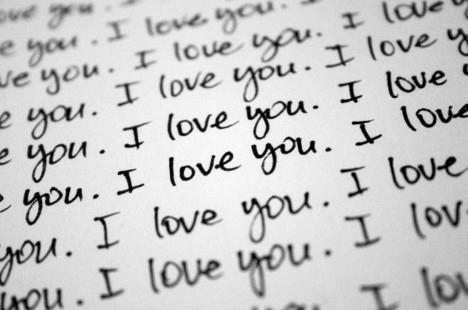 ove you. I
e you. I love you. I
ve you. I love you. I love
e you. I love you. I love y
e you. I love you. I love
e you. I love you. I love
you. I love you. I love
you. I love you. I lov
I lov